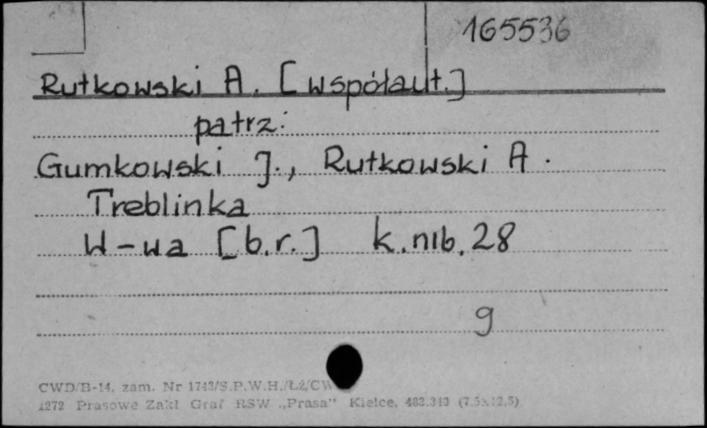 165536
Rutkowski A. [współaut.]
patrz:
Gumkowski J., Rutkowski A.
Treblinka
W-wa [b.r.] k.nlb. 28
g
CWD/B-14, zam. Nr 1743/S.P.W.H./Łź/CW
1272 Prasowe Zakł Graf RSW „Prasa" Kielce, 483.313 (7.5x12.5)